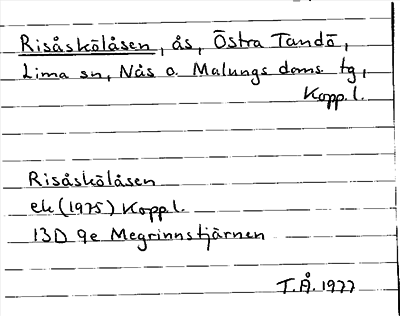 Risåskölåsen, ås, Östra Tandö,
Lima sn, Nås o. Malungs doms. tg,
Kopp. l.
Risåskölåsen
ek (1975) Kopp. l.
13D 9e Megrinnstjärnen
T.Å. 1977